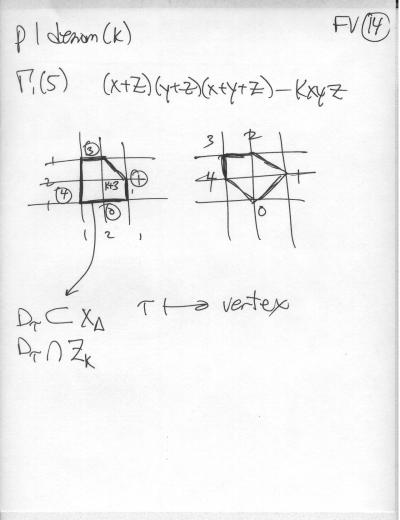 FV (14)
p | denom(k)
Γ₁(5) (x+z)(y+z)(x+y+z) - kxyz
3
1
2
4
k+3
1
1
0
1 2 1
3 2
4 1
0
D_τ ⊂ X_Δ τ ↦ vertex
D_τ ∩ Z_k